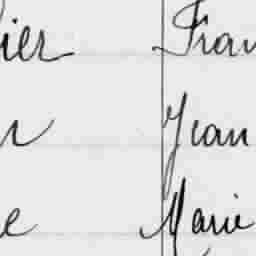 ier Fran
r Jean
e Marie